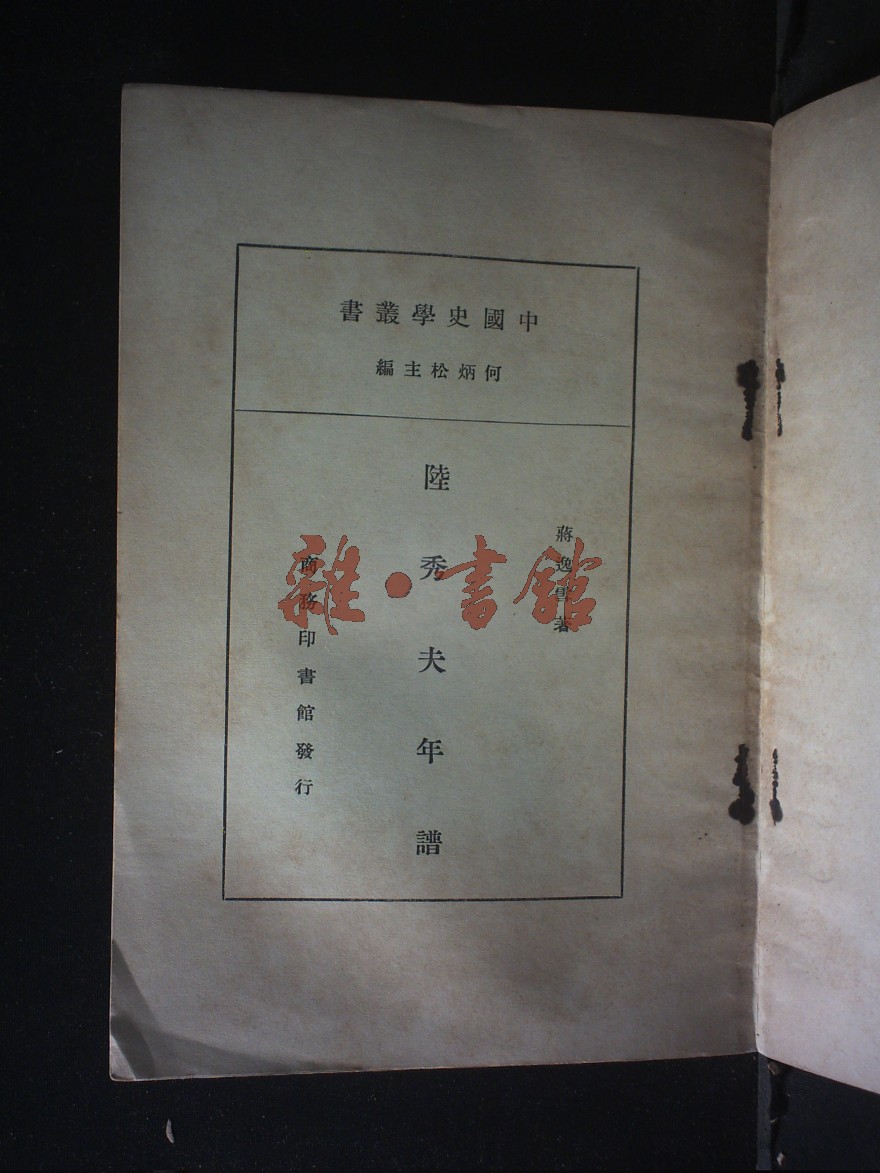 中國史學叢書
何炳松主編
蔣逸雪著
陸秀夫年譜
商務印書館發行
雜·書館